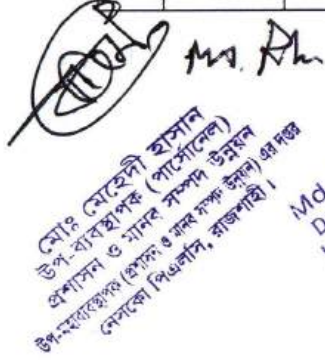 মোঃ মেহেদী হাসান
উপ-ব্যবস্থাপক (পার্সোনেল)
প্রশাসন ও মানব সম্পদ উন্নয়ন
উপ-মহাব্যবস্থাপক (প্রশাসন ও মানব সম্পদ উন্নয়ন) এর দপ্তর
নেসকো পিএলসি, রাজশাহী।
Md
D